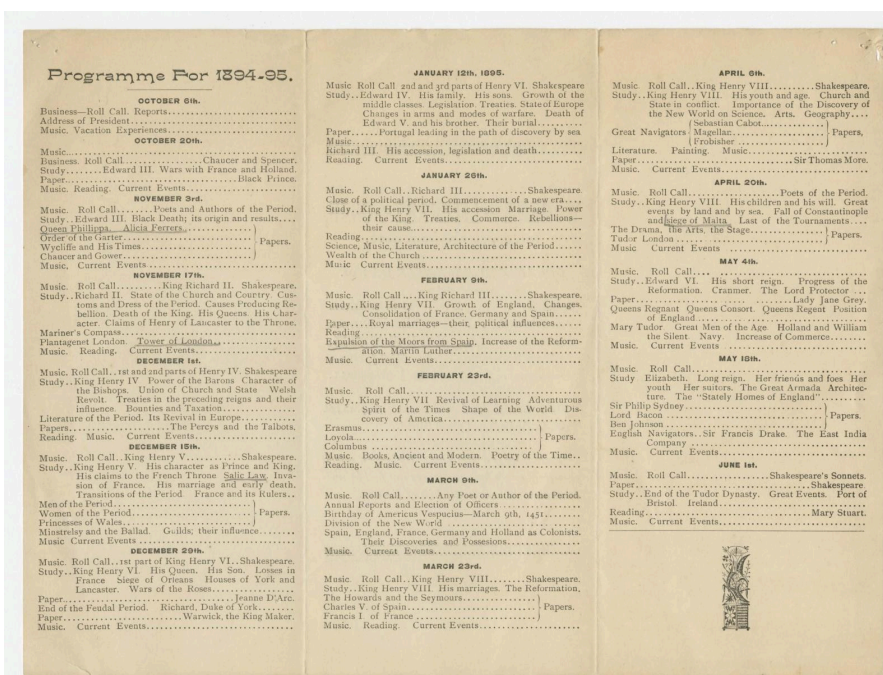 Programme For 1894-95.
OCTOBER 6th.
Business—Roll Call. Reports
Address of President
Music. Vacation Experiences
OCTOBER 20th.
Music
Business. Roll Call Chaucer and Spencer.
Study Edward III. Wars with France and Holland.
Paper Black Prince.
Music. Reading. Current Events
NOVEMBER 3rd.
Music. Roll Call Poets and Authors of the Period.
Study. Edward III. Black Death; its origin and results
Queen Phillippa. Alicia Ferrers
Order of the Garter
Wycliffe and His Times
Chaucer and Gower
Papers.
Music. Current Events
NOVEMBER 17th.
Music. Roll Call King Richard II. Shakespeare.
Study..Richard II. State of the Church and Country. Cus-
toms and Dress of the Period. Causes Producing Re-
bellion. Death of the King. His Queens. His Char-
acter. Claims of Henry of Lancaster to the Throne.
Mariner's Compass
Plantagenet London. Tower of London
Music. Reading. Current Events
DECEMBER 1st.
Music. Roll Call..1st and 2nd parts of Henry IV. Shakespeare
Study..King Henry IV Power of the Barons Character of
the Bishops. Union of Church and State Welsh
Revolt. Treaties in the preceding reigns and their
influence. Bounties and Taxation
Literature of the Period. Its Revival in Europe
Papers The Percys and the Talbots.
Reading. Music. Current Events
DECEMBER 15th.
Music. Roll Call..King Henry V Shakespeare.
Study..King Henry V. His character as Prince and King.
His claims to the French Throne Salic Law. Inva-
sion of France. His marriage and early death.
Transitions of the Period. France and its Rulers..
Men of the Period
Women of the Period
Princesses of Wales
Papers.
Minstrelsy and the Ballad. Guilds; their influence
Music Current Events
DECEMBER 29th.
Music. Roll Call..1st part of King Henry VI..Shakespeare.
Study..King Henry VI. His Queen. His Son. Losses in
France Siege of Orleans Houses of York and
Lancaster. Wars of the Roses
Paper Jeanne D'Arc.
End of the Feudal Period. Richard, Duke of York
Paper Warwick, the King Maker.
Music. Current Events
JANUARY 12th, 1895.
Music Roll Call 2nd and 3rd parts of Henry VI. Shakespeare
Study..Edward IV. His family. His sons. Growth of the
middle classes. Legislation. Treaties. State of Europe
Changes in arms and modes of warfare. Death of
Edward V. and his brother. Their burial
Paper Portugal leading in the path of discovery by sea
Music
Richard III. His accession, legislation and death
Reading. Current Events
JANUARY 26th.
Music. Roll Call..Richard III Shakespeare.
Close of a political period. Commencement of a new era
Study..King Henry VII. His accession Marriage. Power
of the King. Treaties. Commerce. Rebellions—
their cause
Reading
Science, Music, Literature, Architecture of the Period
Wealth of the Church
Music Current Events
FEBRUARY 9th.
Music. Roll Call King Richard III Shakespeare.
Study..King Henry VII. Growth of England, Changes.
Consolidation of France. Germany and Spain
Paper Royal marriages—their political influences
Reading
Expulsion of the Moors from Spain. Increase of the Reform-
ation. Martin Luther
Music. Current Events
FEBRUARY 23rd.
Music. Roll Call
Study..King Henry VII Revival of Learning Adventurous
Spirit of the Times Shape of the World Dis-
covery of America
Erasmus
Loyola
Columbus
Papers.
Music. Books, Ancient and Modern. Poetry of the Time..
Reading. Music. Current Events
MARCH 9th.
Music. Roll Call Any Poet or Author of the Period.
Annual Reports and Election of Officers
Birthday of Americus Vespucius—March 9th, 1451
Division of the New World
Spain, England, France, Germany and Holland as Colonists.
Their Discoveries and Possesions
Music. Current Events
MARCH 23rd.
Music. Roll Call..King Henry VIII Shakespeare.
Study..King Henry VIII. His marriages. The Reformation,
The Howards and the Seymours
Charles V. of Spain
Francis I. of France
Papers.
Music. Reading. Current Events
APRIL 6th.
Music. Roll Call..King Henry VIII Shakespeare.
Study..King Henry VIII. His youth and age. Church and
State in conflict. Importance of the Discovery of
the New World on Science. Arts. Geography
Great Navigators
Sebastian Cabot
Magellan
Frobisher
Papers,
Literature. Painting. Music
Paper Sir Thomas More.
Music. Current Events
APRIL 20th.
Music. Roll Call Poets of the Period.
Study..King Henry VIII. His children and his will. Great
events by land and by sea. Fall of Constantinople
and siege of Malta Last of the Tournaments
The Drama, the Arts, the Stage
Tudor London
Papers.
Music. Current Events
MAY 4th.
Music. Roll Call
Study..Edward VI. His short reign. Progress of the
Reformation. Cranmer. The Lord Protector
Paper Lady Jane Grey.
Queens Regnant Queens Consort. Queens Regent Position
of England
Mary Tudor Great Men of the Age Holland and William
the Silent. Navy. Increase of Commerce
Music. Current Events
MAY 18th.
Music. Roll Call
Study Elizabeth. Long reign. Her friends and foes Her
youth Her suitors. The Great Armada Architec-
ture. The "Stately Homes of England"
Sir Philip Sydney
Lord Bacon
Ben Johnson
Papers.
English Navigators..Sir Francis Drake. The East India
Company
Music. Current Events
JUNE 1st.
Music. Roll Call Shakespeare's Sonnets.
Paper Shakespeare.
Study..End of the Tudor Dynasty. Great Events. Port of
Bristol. Ireland
Reading Mary Stuart.
Music. Current Events